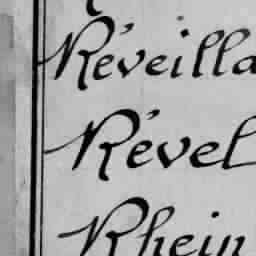 Réveilla
Révél
Rhein